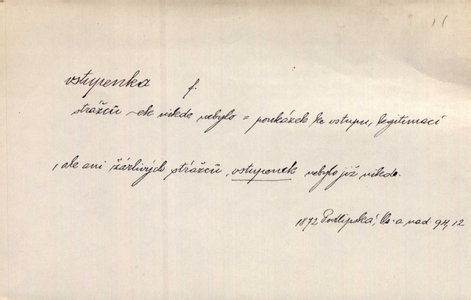 vstupenka f.
strážců -ek nikde nebylo = poukázek ke vstupu, legitimací
, ale ani žárlivých strážců, vstupenek nebylo již nikde.
1872 Podlipská, a nad 94, 12